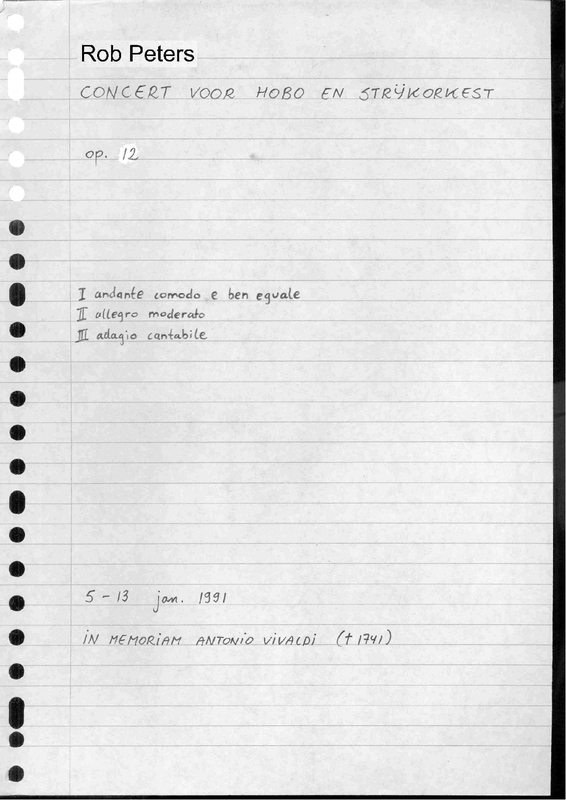 Rob Peters
CONCERT VOOR HOBO EN STRIJKORKEST
op. 12
I andante comodo e ben eguale
II allegro moderato
III adagio cantabile
5 - 13 jan. 1991
IN MEMORIAM ANTONIO VIVALDI († 1741)